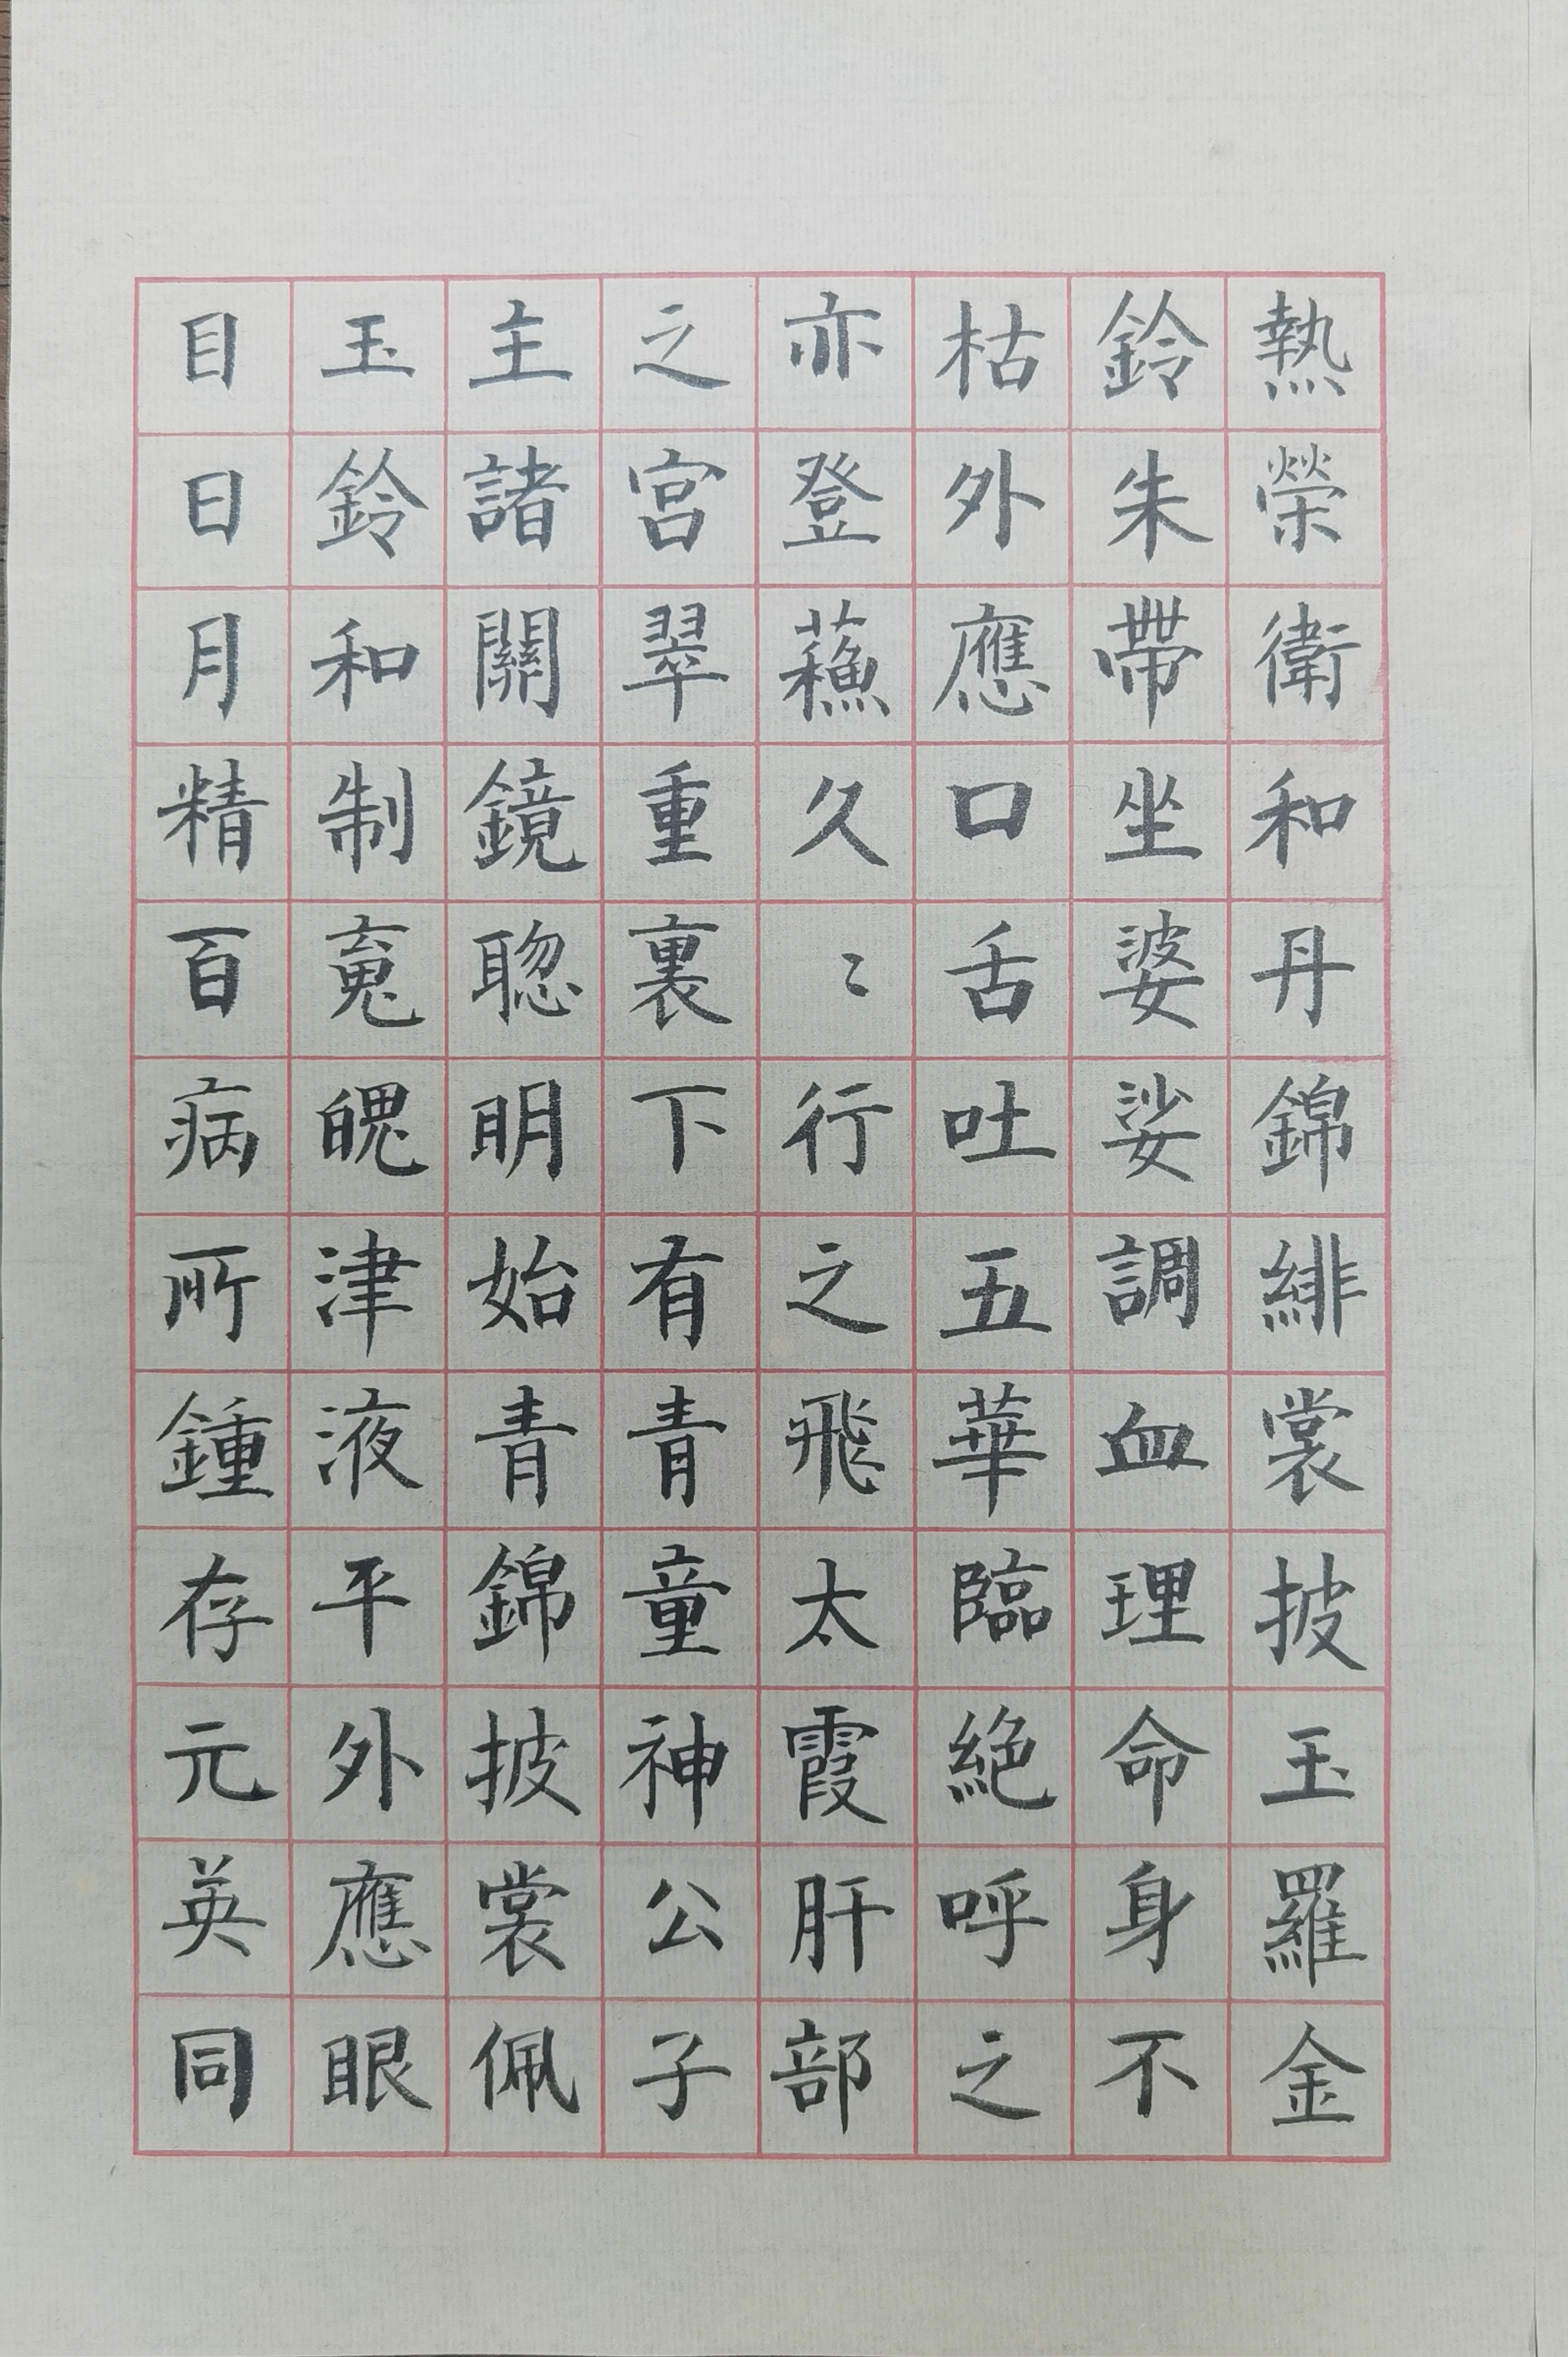 熱榮衛和丹錦緋裳披玉羅金
鈴朱帶坐婆娑調血理命身不
枯外應口舌吐五華臨絶呼之
亦登蘓久〻行之飛太霞肝部
之宫翠重裏下有青童神公子
主諸關鏡聦明始青錦披裳佩
玉鈴和制䰟魄津液平外應眼
目日月精百病所鍾存元英同